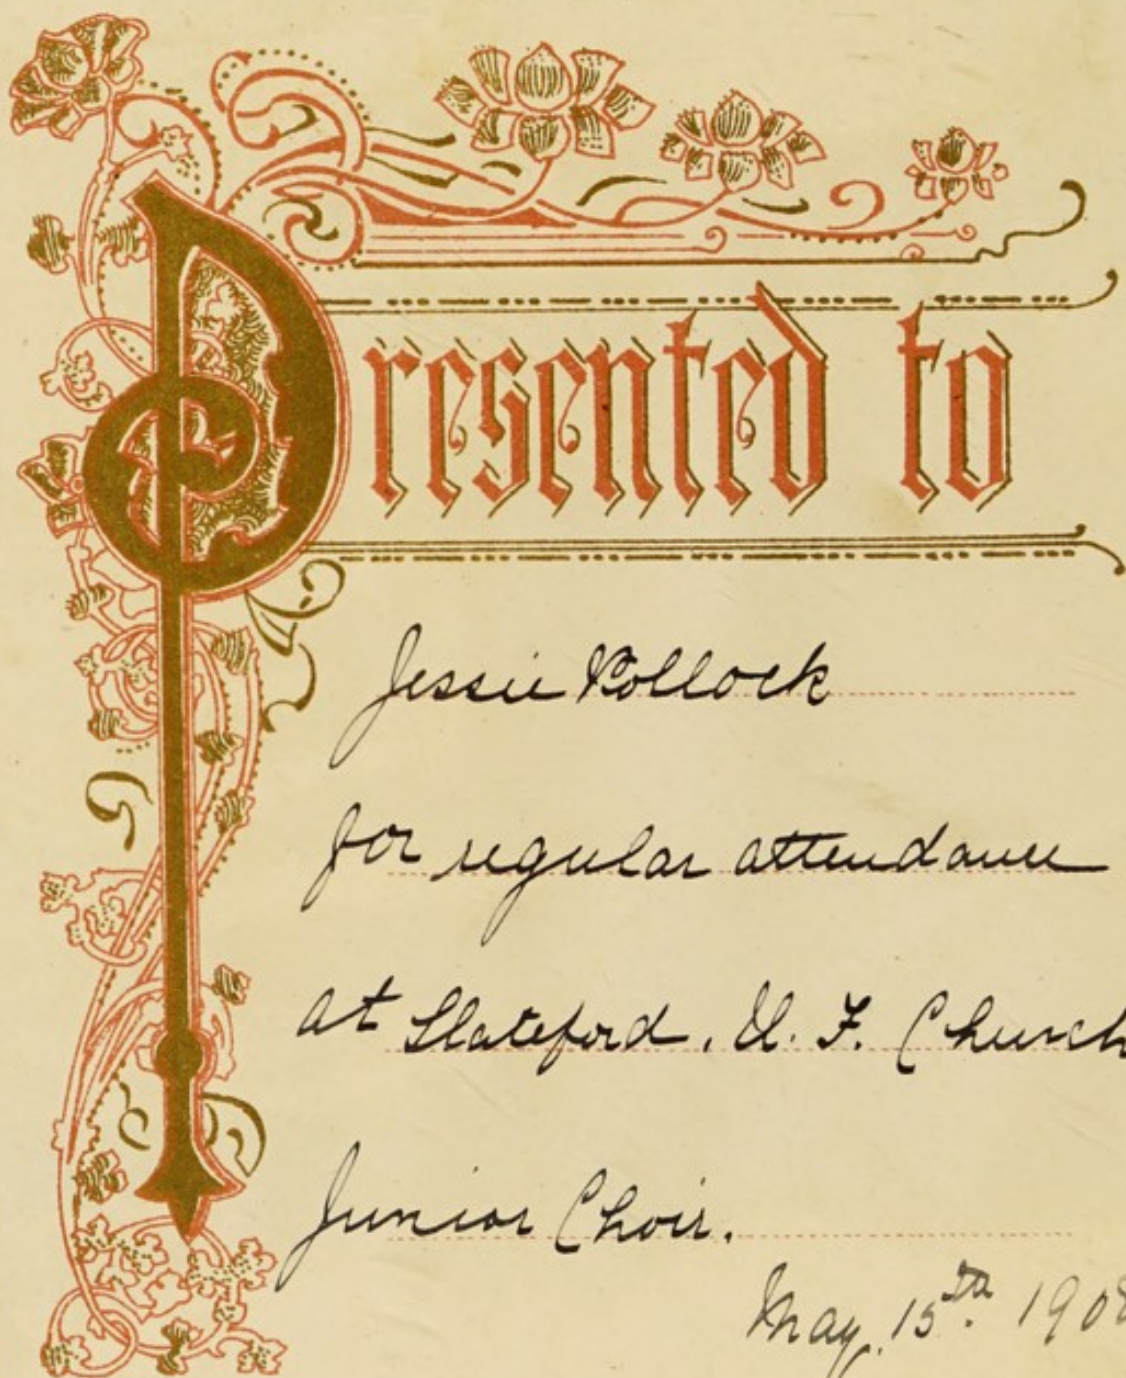 Presented to
Jessie Pollock
for regular attendance
at Slateford. U. F. Church
Junior Choir.
May, 15th. 1908